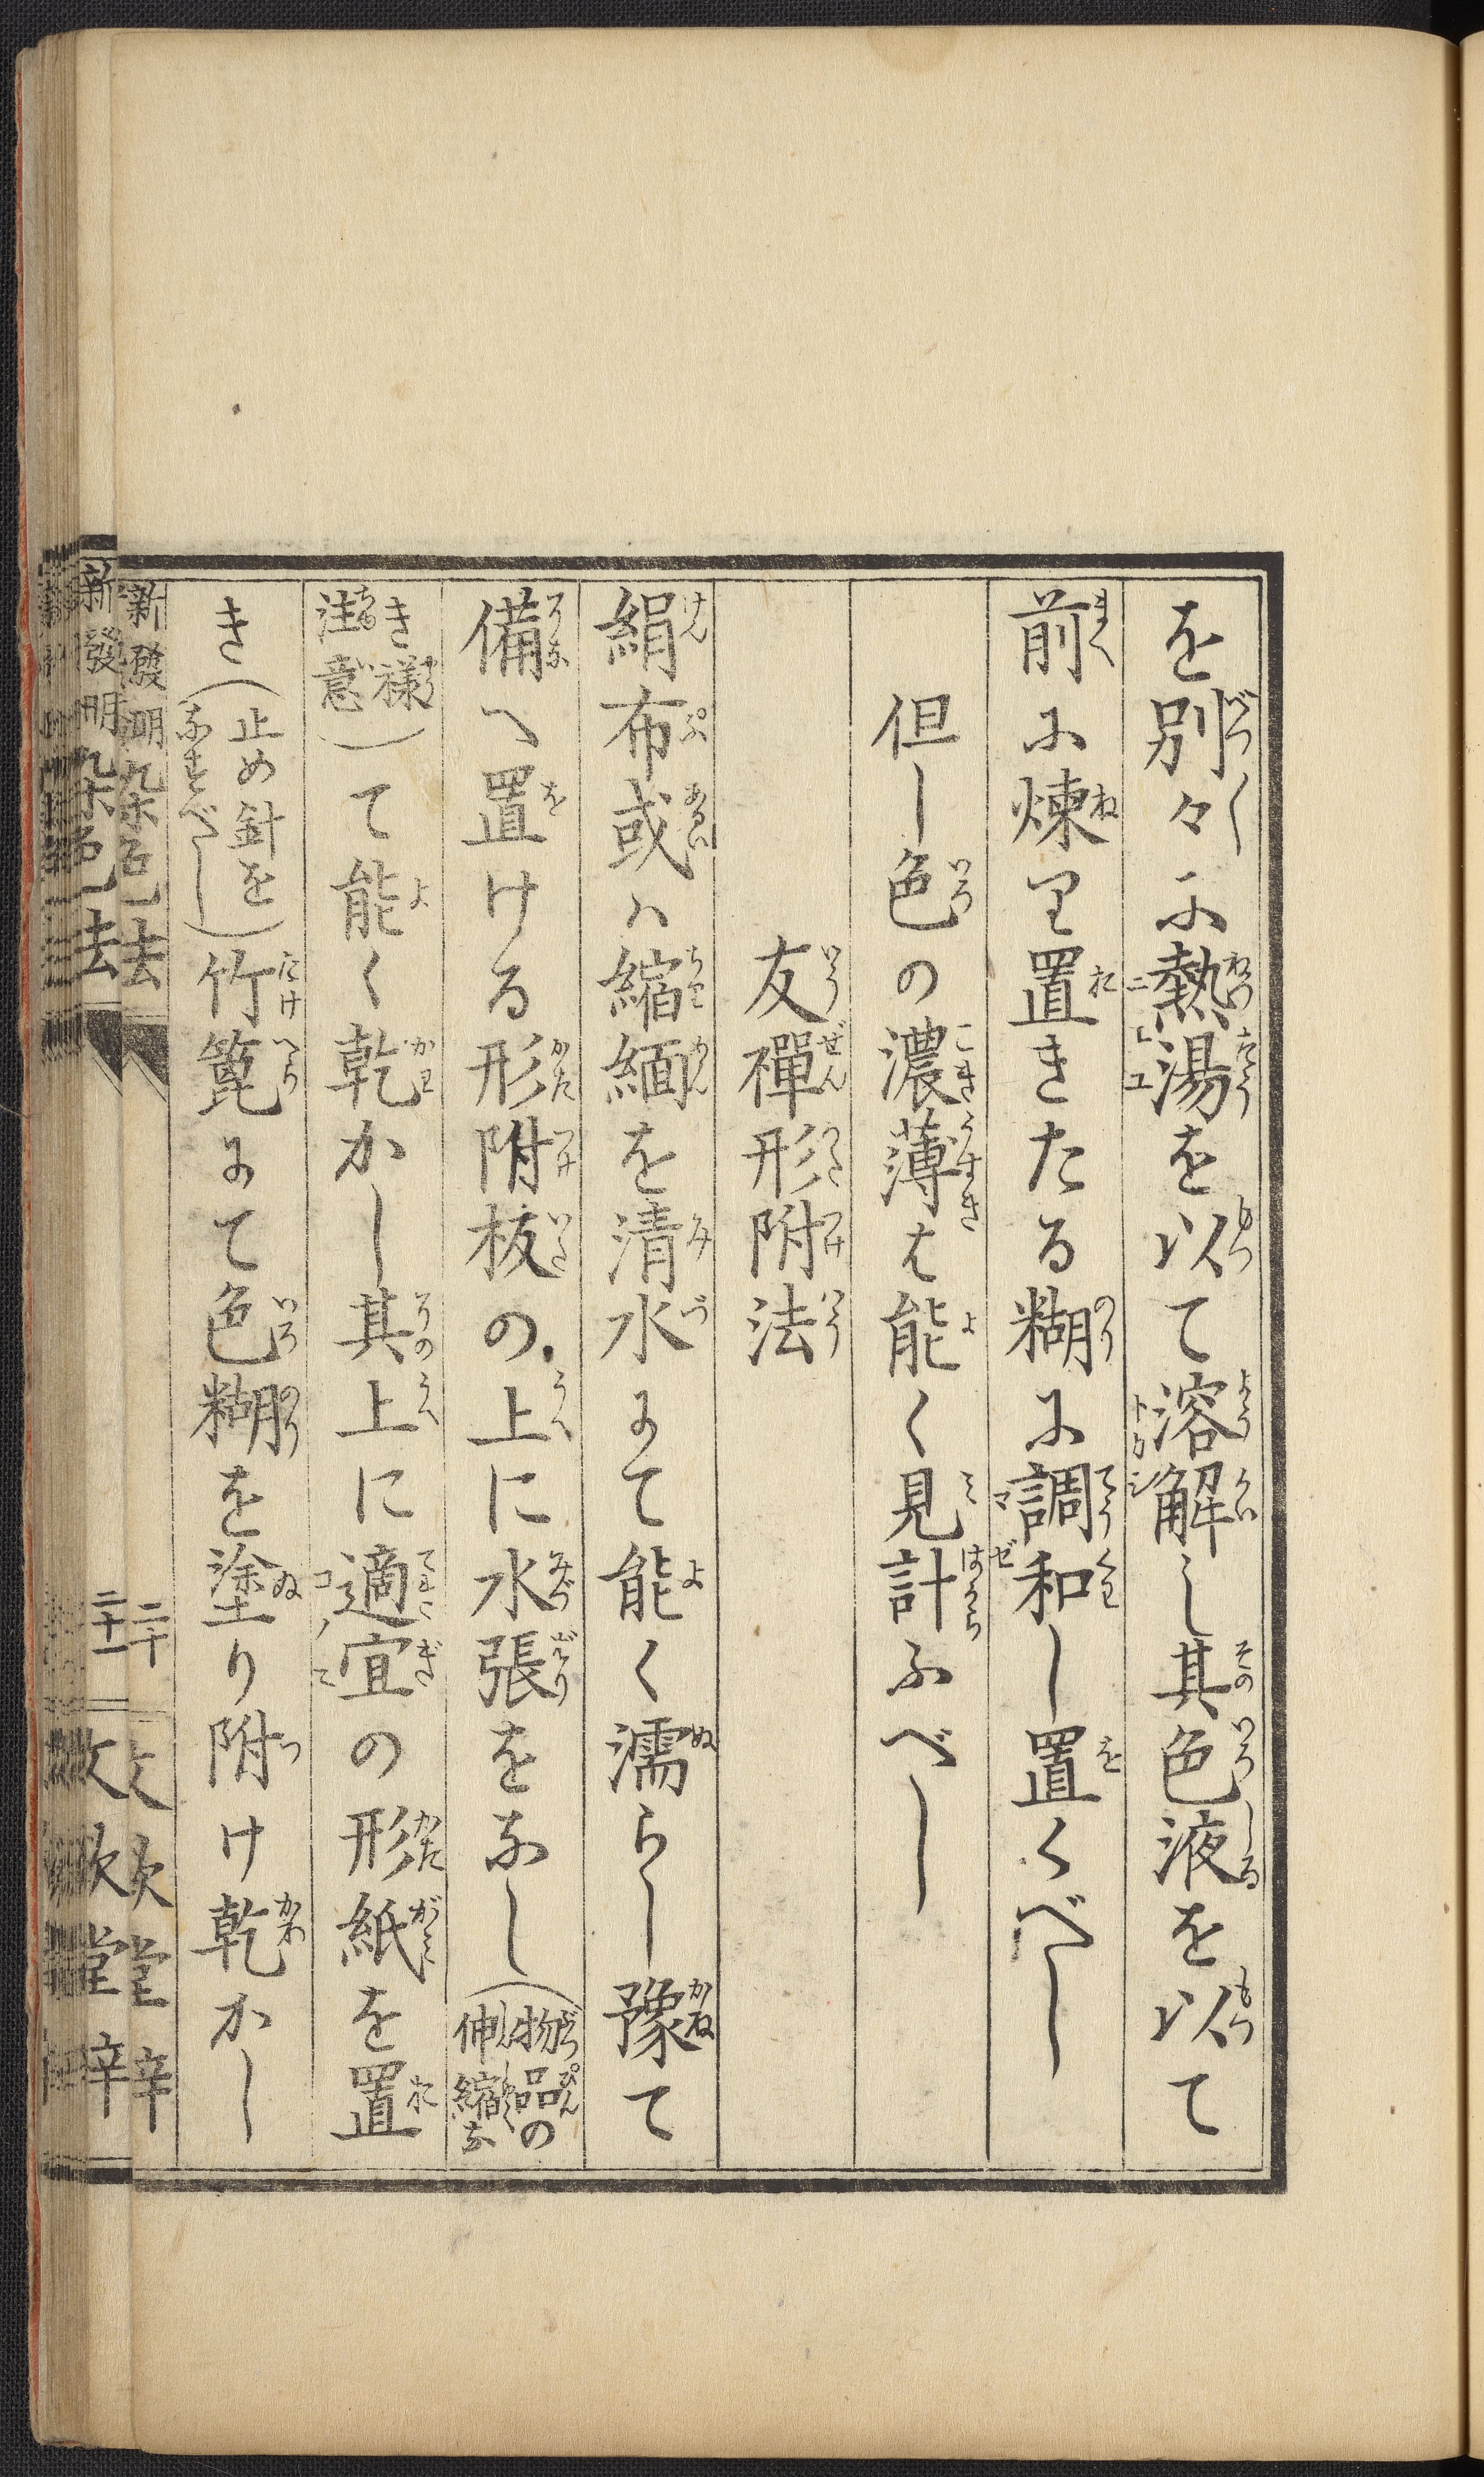 を別々に熱湯を以て溶解し其色液を以て
前に煉り置きたる糊に調和し置くべし
但し色の濃薄は能く見計ふべし
友禪形附法
絹布或ハ縮緬を清水にて能く濡らし豫て
備へ置ける形附板の上に水張をなし(物品の伸縮な
き様注意)て能く乾かし其上に適宜の形紙を置
き(止め針をなすべし)竹箆にて色糊を塗り附け乾かし
新發明染色法 二十
新發明染色法 二十一